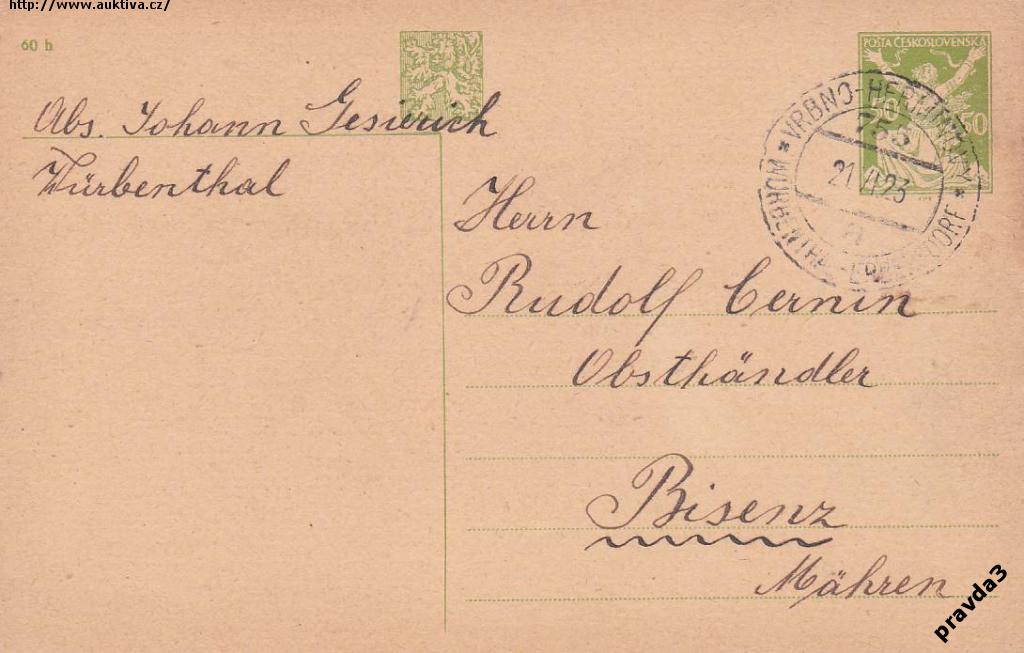 http://www.auktiva.cz/
60 h
Abs. Johann Gesierich
Würbenthal
POŠTA ČESKOSLOVENSKÁ
50 50
* VRBNO-HEŘMINOVY *
753
21.II.23
WÜRBENTHAL-ERBERSDORF
Herrn
Rudolf Cernin
Obsthändler
Bisenz
Mähren
pravda3